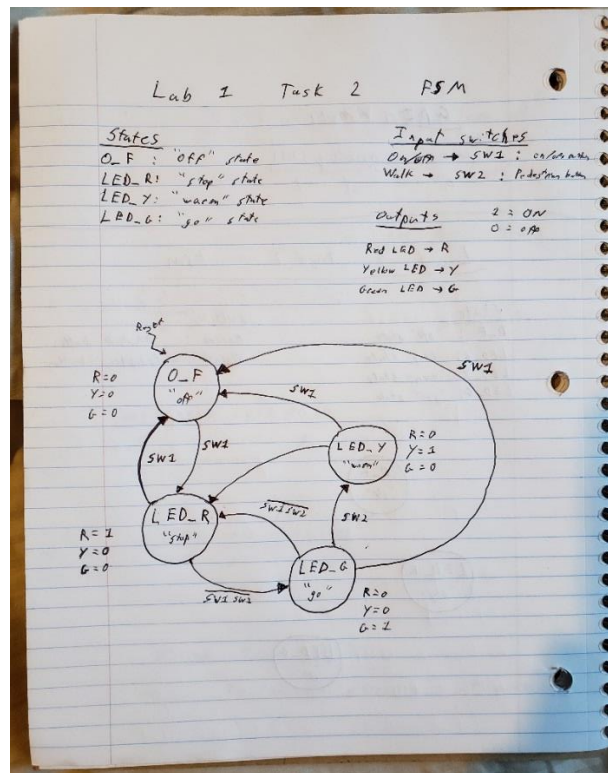 Lab 1 Task 2 FSM
States
O_F : "off" state
LED_R: "stop" state
LED_Y: "warn" state
LED_G: "go" state
Input switches
On/Off → SW1 : on/off
Walk → SW2 : Pedestrian button
Outputs 1 = ON
0 = off
Red LED → R
Yellow LED → Y
Green LED → G
Reset
O_F
"off"
R=0
Y=0
G=0
SW1
SW1
SW1
SW1
LED_Y
"warn"
R=0
Y=1
G=0
LED_R
"stop"
R=1
Y=0
G=0
S̅W̅1̅ ̅S̅W̅2̅
SW2
LED_G
"go"
R=0
Y=0
G=1
S̅W̅1̅ ̅S̅W̅2̅